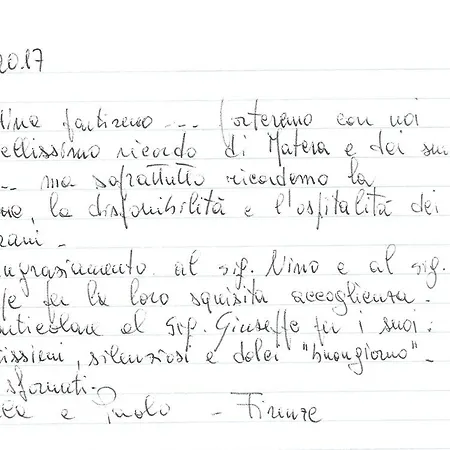 2017
partiremo --- Porteremo con noi
ellissimo ricordo di Matera e dei suoi
--- ma soprattutto ricordemo la
la disponibilità e l'ospitalità dei
rani.
ngraziamento al sig. Nino e al sig.
per la loro squisita accoglienza.
articolare al Sig. Giuseppe per i suoi:
issimi, silenziosi e dolci "buongiorno".
e Paolo - Firenze